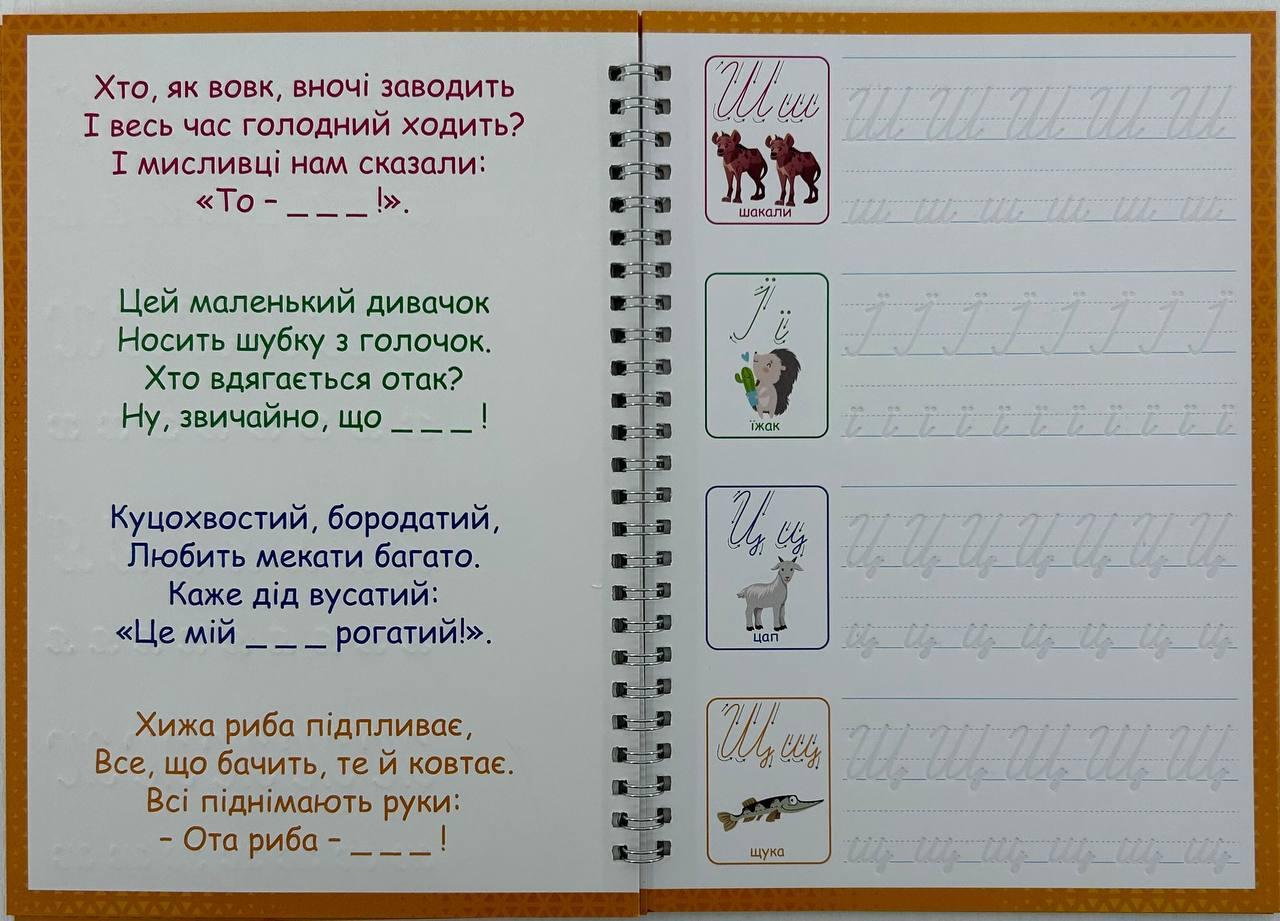 Хто, як вовк, вночі заводить
І весь час голодний ходить?
І мисливці нам сказали:
«То – _ _ _ !».
Цей маленький дивачок
Носить шубку з голочок.
Хто вдягається отак?
Ну, звичайно, що _ _ _ !
Куцохвостий, бородатий,
Любить мекати багато.
Каже дід вусатий:
«Це мій _ _ _ рогатий!».
Хижа риба підпливає,
Все, що бачить, те й ковтає.
Всі піднімають руки:
– Ота риба – _ _ _ !
Ш ш
шакали
Ш Ш Ш Ш Ш
ш ш ш ш ш ш
Ї ї
їжак
Ї Ї Ї Ї Ї Ї Ї Ї
ї ї ї ї ї ї ї ї ї ї ї
Ц ц
цап
Ц Ц Ц Ц Ц Ц Ц
ц ц ц ц ц ц ц
Щ щ
щука
Щ Щ Щ Щ Щ
щ щ щ щ щ щ